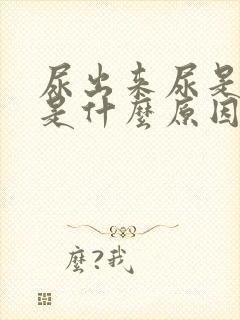 尿出来尿是
是什麼原因
麼?我